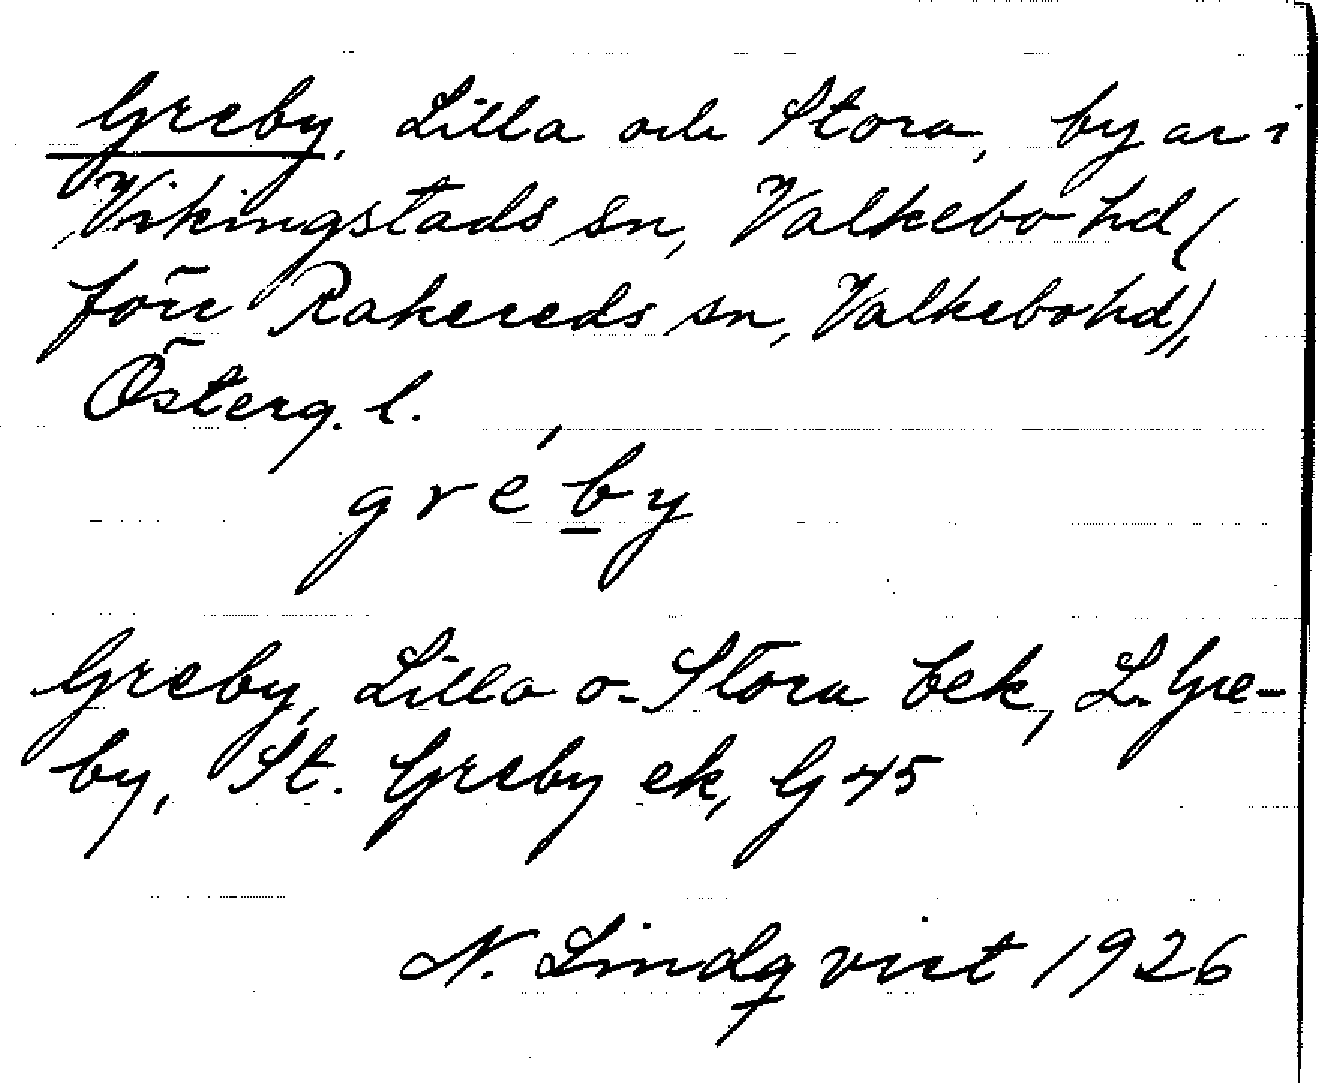 Greby, Lilla och Stora, byar i
Vikingstads sn, Valkebo hd (
förr Rakereds sn, Valkebo hd),
Österg. l.
gré´by
Greby, Lilla o. Stora bek, L. Gre-
by, St. Greby ek, G 45
N. Lindqvist 1926